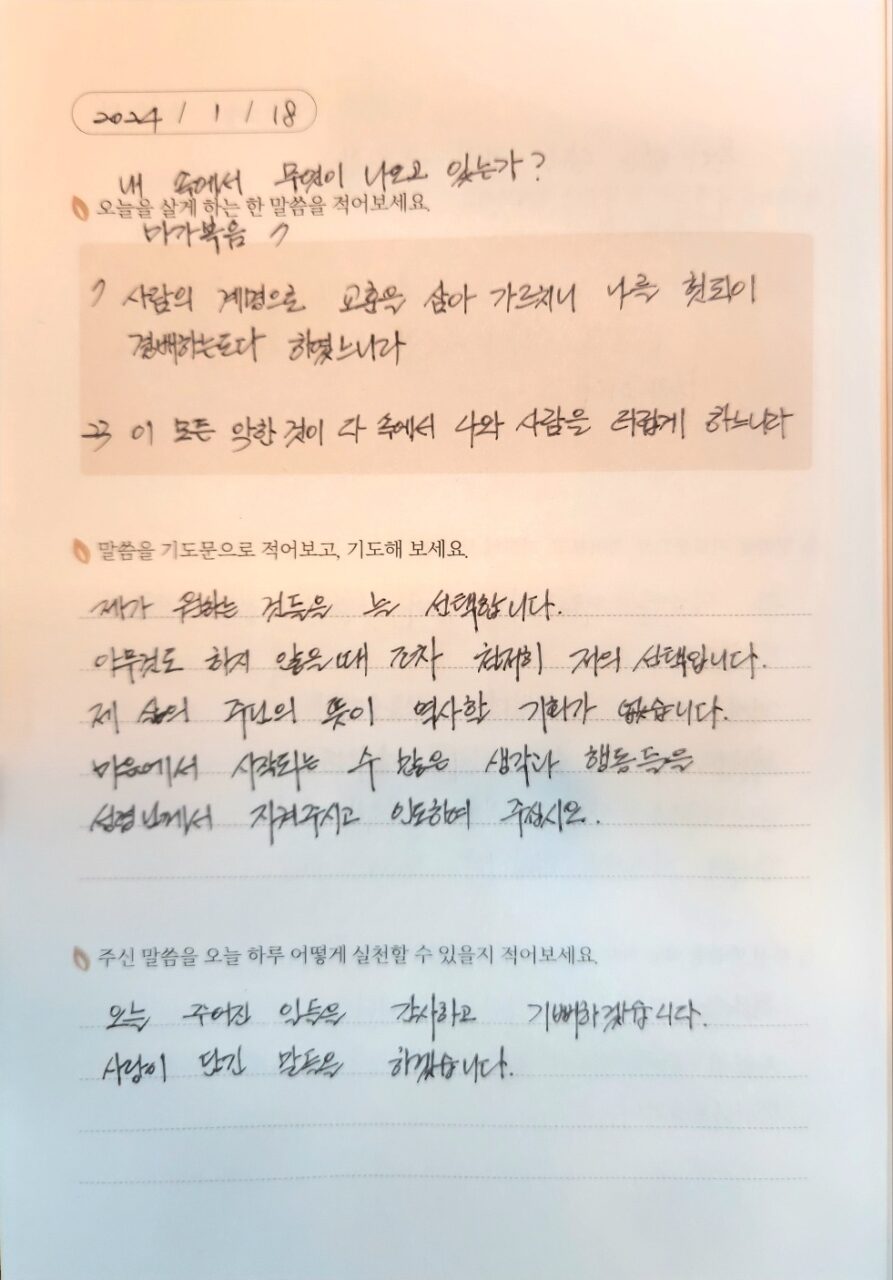 2024 / 1 / 18
내 속에서 무엇이 나오고 있는가?
오늘을 살게 하는 한 말씀을 적어보세요.
마가복음 7
7 사람의 계명으로 교훈을 삼아 가르치니 나를 헛되이
경배하는도다 하였느니라
23 이 모든 악한 것이 다 속에서 나와 사람을 더럽게 하느니라
말씀을 기도문으로 적어보고, 기도해 보세요.
제가 원하는 것들을 늘 선택합니다.
아무것도 하지 않을때 조차 철저히 저의 선택입니다.
제 삶의 주님의 뜻이 역사할 기회가 없습니다.
마음에서 시작되는 수 많은 생각과 행동들을
성령님께서 지켜주시고 인도하여 주십시오.
주신 말씀을 오늘 하루 어떻게 실천할 수 있을지 적어보세요.
오늘 주어진 일들을 감사하고 기뻐하겠습니다.
사랑이 담긴 말들을 하겠습니다.